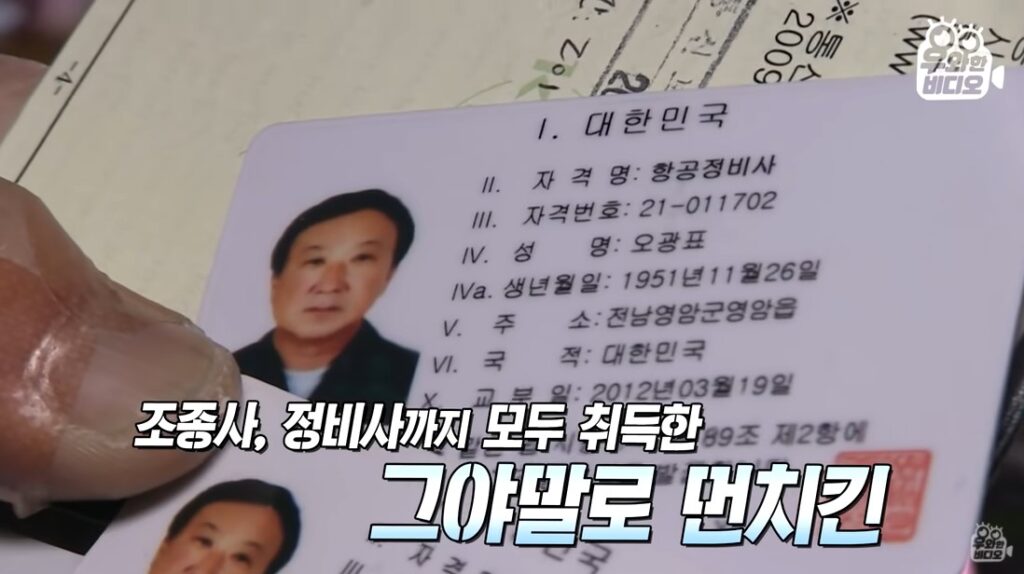 우와한
비디오
I. 대한민국
II. 자 격 명: 항공정비사
III. 자격번호: 21-011702
IV. 성 명: 오광표
IVa. 생년월일: 1951년11월26일
V. 주 소: 전남영암군영암읍
VI. 국 적: 대한민국
X. 교 부 일: 2012년03월19일
89조 제2항에
조종사, 정비사까지 모두 취득한
그야말로 먼치킨
우와한
비디오